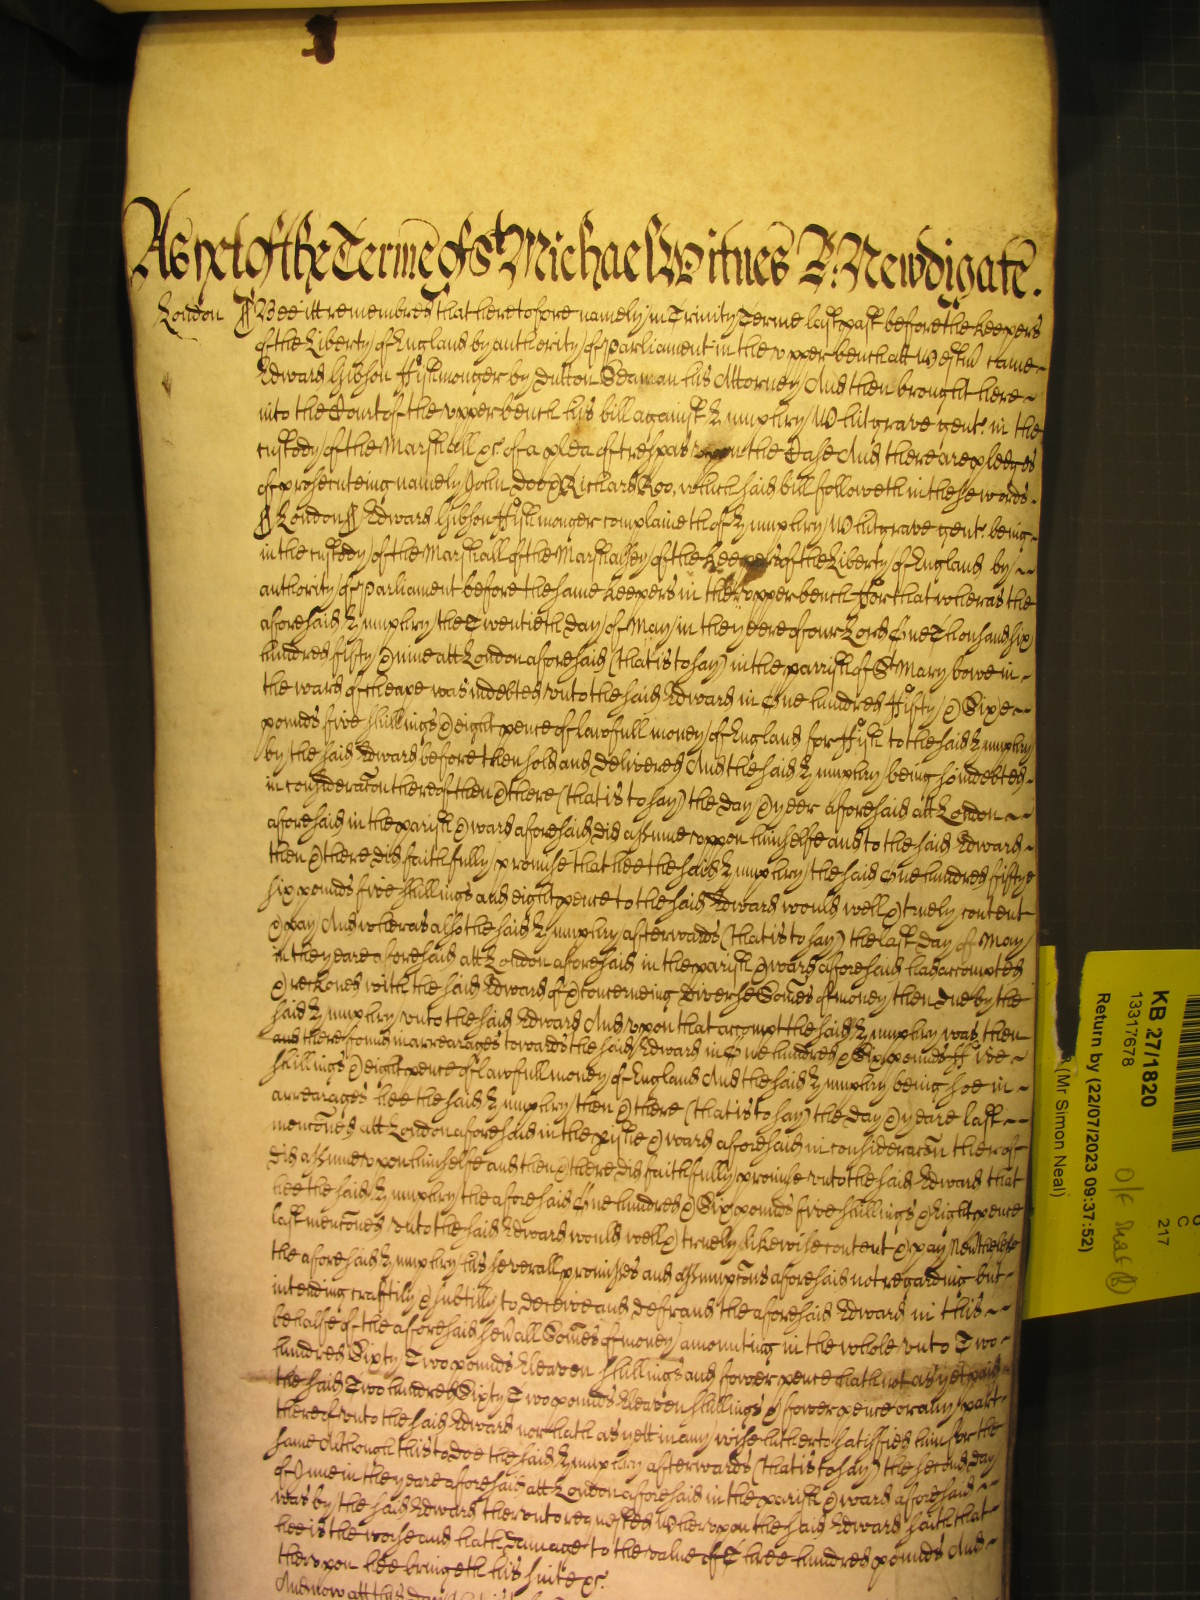 As yet of the Terme of St Michael Witnes R: Newdigate.
London ¶ Bee itt remembred that heretofore namely in Trinity Terme last past before the keepers
of the Liberty of England by authority of Parliament in the upper bench att Westm̃ came
Edward Gibson Fishmonger by Dutton Seaman his Attorney And then brought here
into the Court of the upper bench his bill against Humphry Whitgrave gent. in the
custody of the Marshall &c. of a plea of trespas upon the Case And there are pledges
of prosecuteing namely John Doe & Richard Roo, which said bill followeth in these words.
¶ London ¶ Edward Gibson Fishmonger complaineth of Humphry Whitgrave gent. being
in the custody of the Marshall of the Marshalsey of the Keepers of the Liberty of England by
authority of Parliament before the same keepers in the upper bench For that wheras the
aforesaid Humphry the Twentieth day of May in the yeere of our Lord One Thousand six
hundred fifty & nine att London aforesaid (that is to say) in the parrish of St Mary bowe in
the ward of Cheape was indebted unto the said Edward in One hundred Fifty & Sixe
pounds five shillings & eight pence of lawfull money of England for Fish to the said Humphry
by the said Edward before then sold and delivered And the said Humphry being soe indebted
in consideraton thereof then & there (that is to say) the day & yeer aforesaid att London
aforesaid in the parish & ward aforesaid did assume uppon himselfe and to the said Edward
then & there did faithfully promise that hee the said Humphry the said One hundred fiftye
six pounds five shillings and eight pence to the said Edward would well & truely content
& pay And wheras also the said Humphry afterwards (that is to say) the last day of May
in the yeare aforesaid att London aforesaid in the parish & ward aforesaid had accompted
& reckoned with the said Edward of & concerneing diverse Somes of money then due by the
said Humphry unto the said Edward And upon that accompt the said Humphry was then
and there found in arrearages towards the said Edward in One hundred & Six pounds Five
shillings & eight pence of lawfull money of England And the said Humphry being soe in
arrearages hee the said Humphry then & there (that is to say) the day & yeare last
mentoned att London aforesaid in the pishe & ward aforesaid in consideraton therof
did assume upon himselfe and then & there did faithfully promise unto the said Edward that
hee the said Humphry the aforesaid One hundred & Six pounds five shillings & Eight pence
last mentoned unto the said Edward would well & truely likewise content & pay Neverthelesse
the aforesaid Humphry his severall promises and assumptons aforesaid not regarding but
intending craftily & subtilly to deceive and defraud the aforesaid Edward in this
behalfe of the aforesaid sev̄all Somes of money amounting in the whole unto Two
hundred Sixty Two pounds Eleaven shillings and fower pence hath not as yet paid
the said Two hundred Sixty Two pounds Eleaven shillings & fower pence or any part
thereof unto the said Edward nor hath as yett in any wise hitherto satisfied him for the
same Although this to doe the said Humphry afterwards (that is to say) the second day
of June in the yeare aforesaid att London aforesaid in the parish & ward aforesaid
was by the said Edward therunto requested Wherupon the said Edward saith that
hee is the worse and hath damage to the value of Three hundred pounds And
therupon hee bringeth his suite &c.
And now att this day
KB 27/1820
13317678
Return by (22/07/2023 09:37:52)
(Mr Simon Neal)
C
217